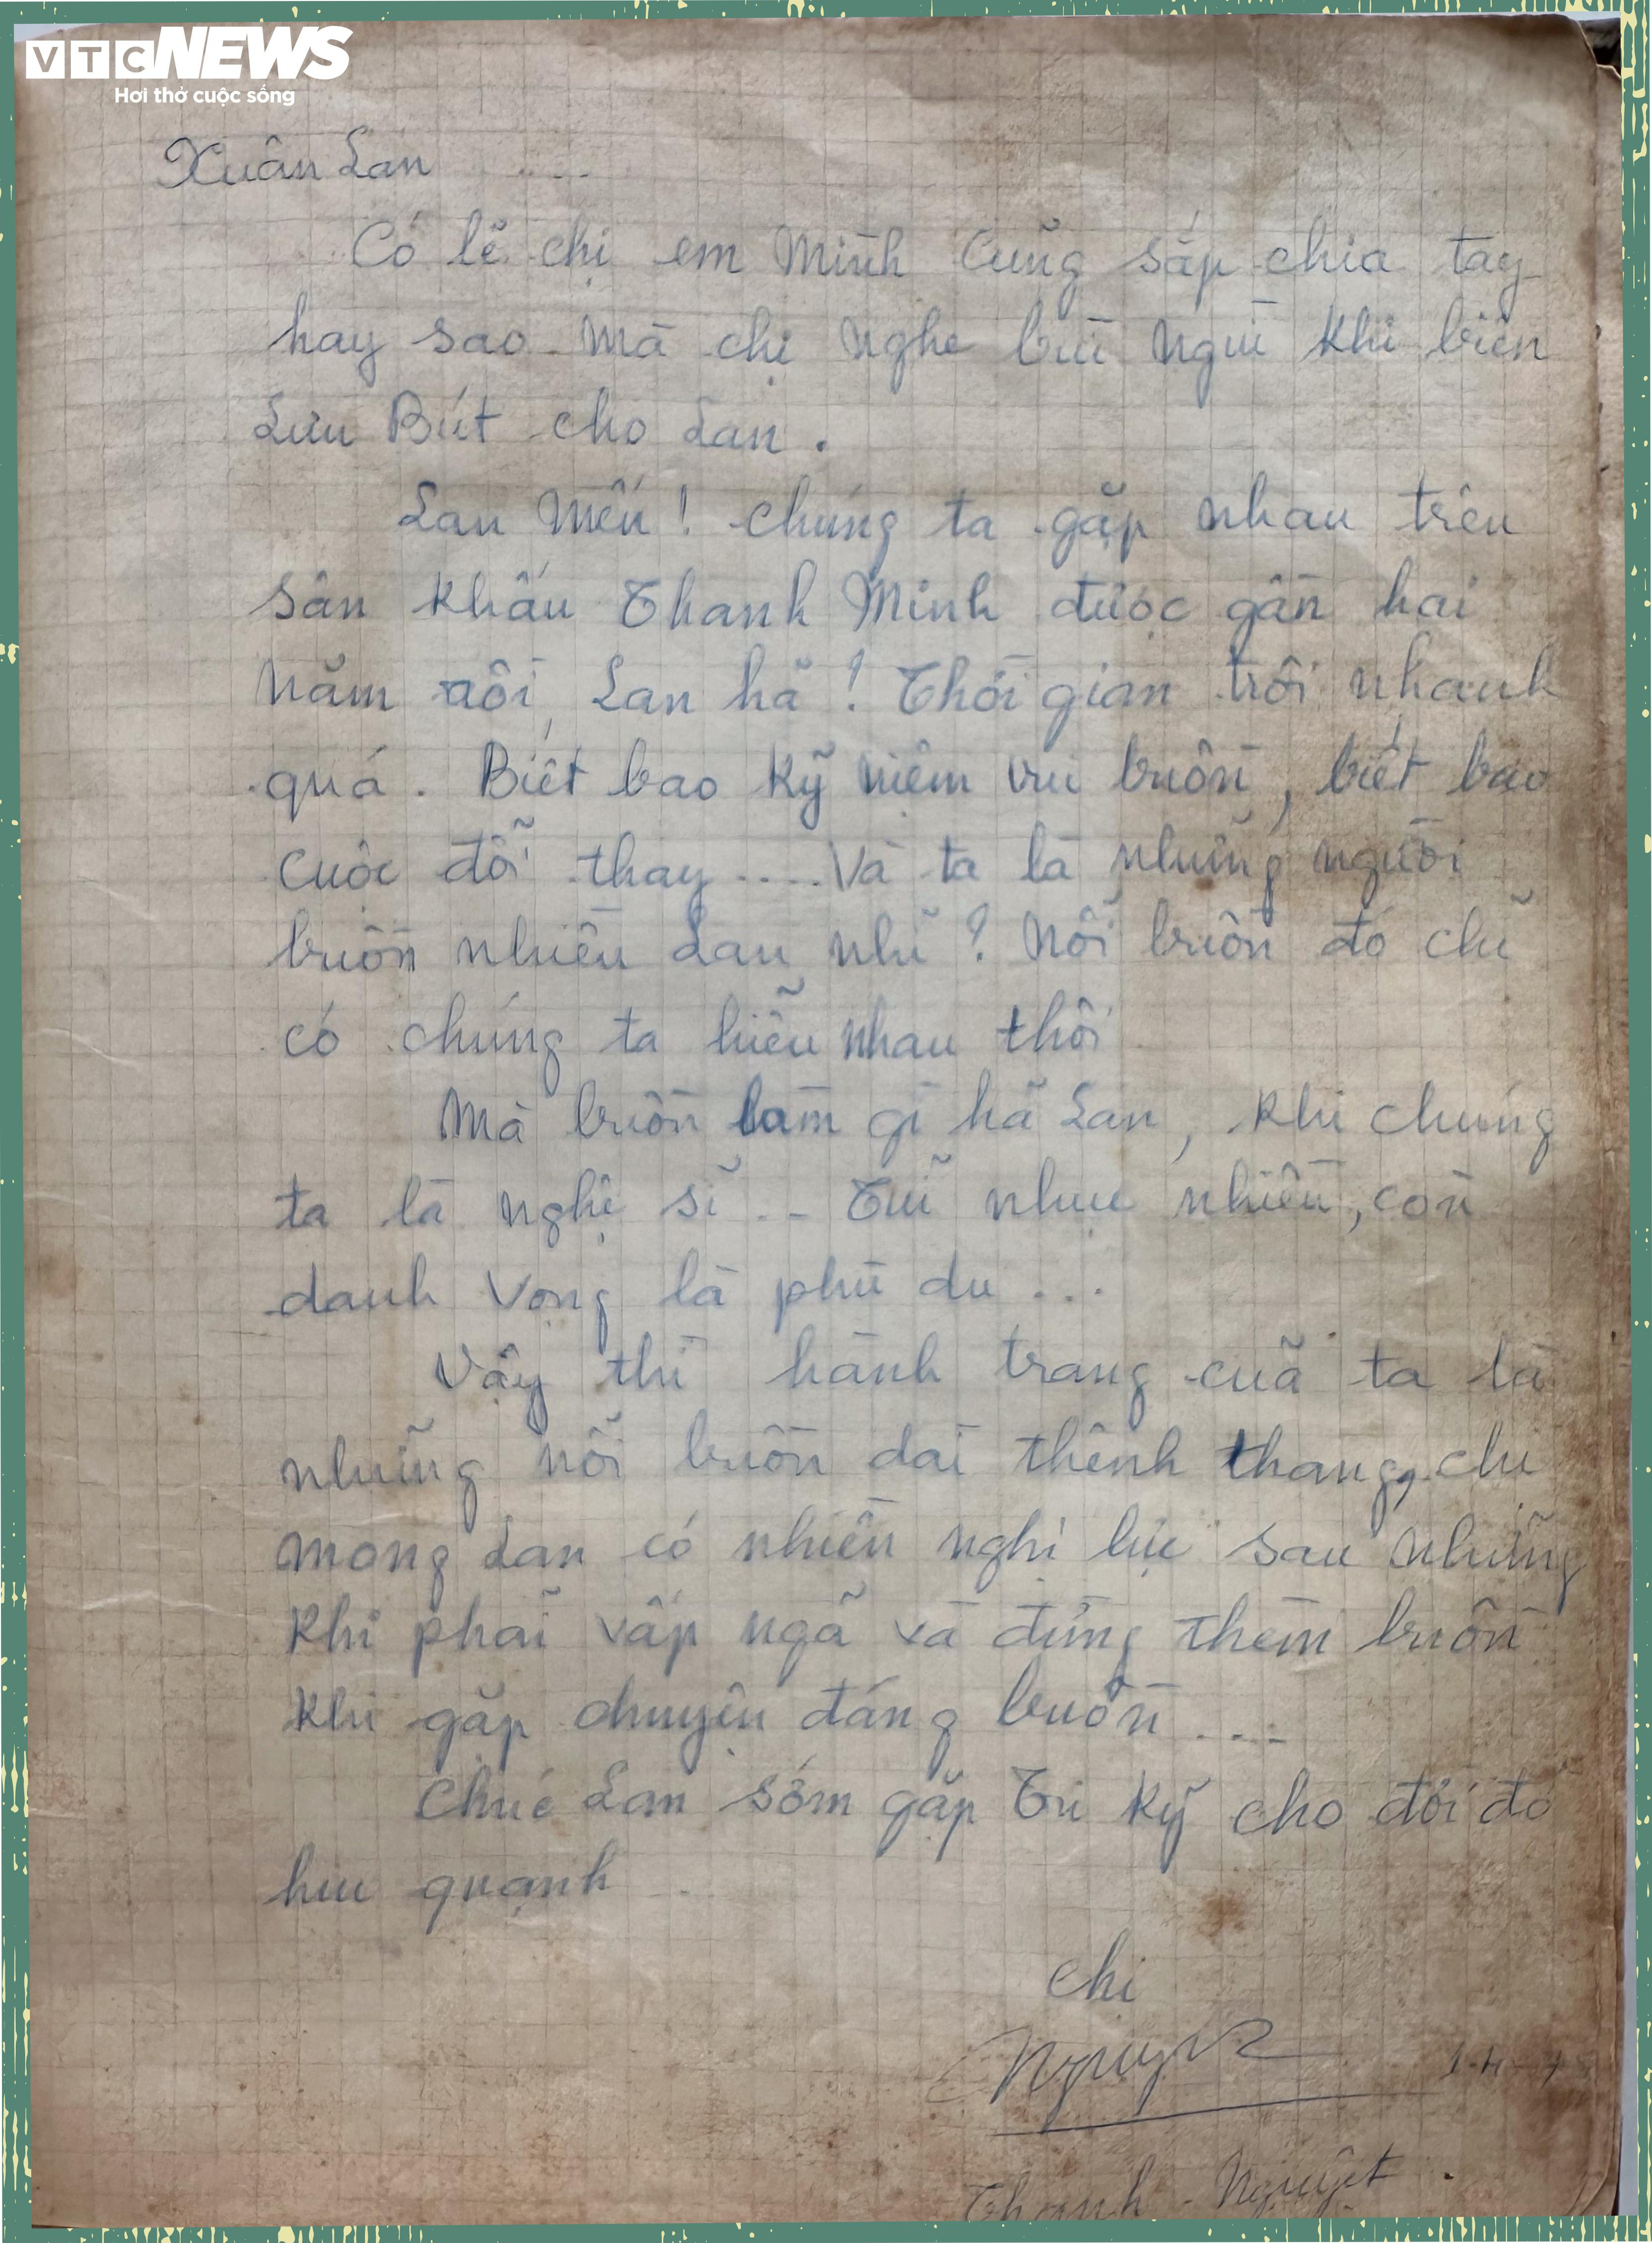 VTC NEWS
Hơi thở cuộc sống
Xuân Lan ....
Có lẽ chị em Mình Cũng sắp chia tay
hay sao mà chị nghe bùi ngùi khi biên
Lưu Bút cho Lan.
Lan Mến! chúng ta gặp nhau trên
sân khấu Thanh Minh được gần hai
năm rồi, Lan hã! Thời gian trôi nhanh
quá. Biết bao kỹ niệm vui buồn, biết bao
cuộc đỗi thay .... Và ta là những người
buồn nhiều Lan nhĩ? Nỗi buồn đó chĩ
có chúng ta hiễu nhau thôi
Mà buồn làm gì hã Lan, khi chúng
ta là nghệ sĩ .. Tũi nhục nhiều, còn
danh vọng là phù du ...
Vậy thì hành trang cuã ta là
những nỗi buồn dài thênh thang, chị
mong Lan có nhiều nghị lực sau những
khi phaĩ vấp ngã và đừng thèm buồn
khi gặp chuyện đáng buồn ....
Chúc Lan sớm gặp Tri kỹ cho đời đỡ
hiu quạnh
Chị
Nguyệt
Thanh - Nguyệt.